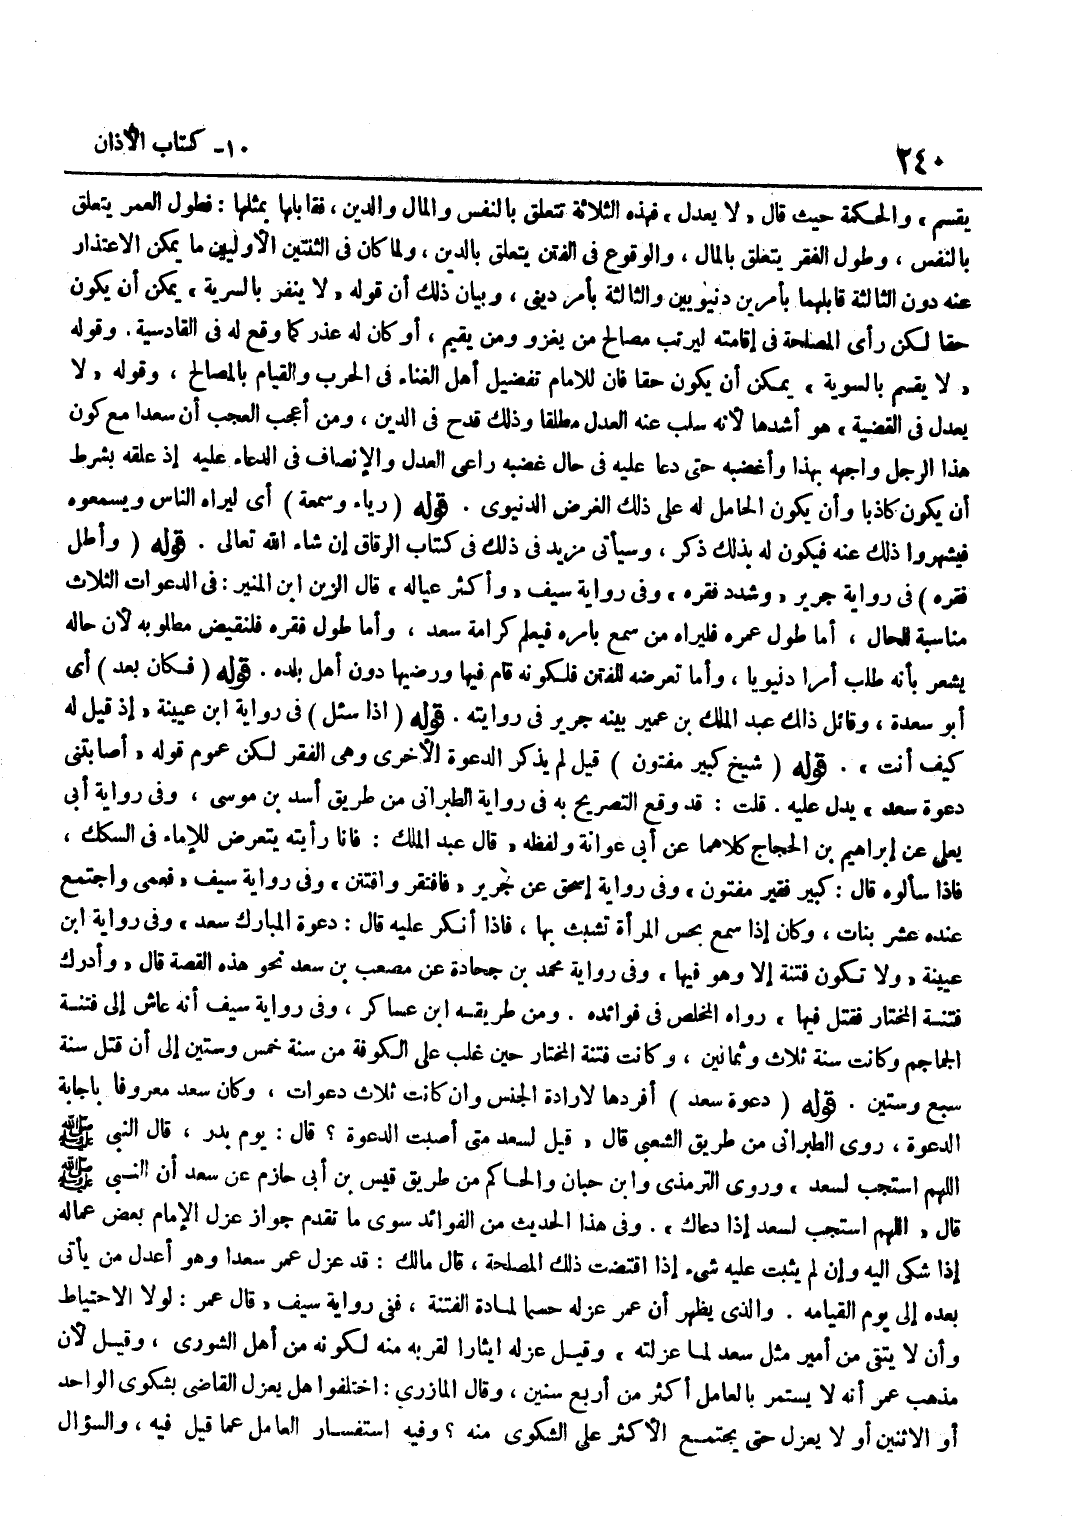 ٢٤٠
١٠- كتاب الأذان
يقسم ، والحكمة حيث قال « لا يعدل » فهذه الثلاثة تتعلق بالنفس والمال والدين ، فقابلها بمثلها : فطول العمر يتعلق
بالنفس ، وطول الفقر يتعلق بالمال ، والوقوع فى الفتن يتعلق بالدين ، ولما كان فى الثنتين الأوليين ما يمكن الاعتذار
عنه دون الثالثة قابلهما بأمرين دنيويين والثالثة بأمر دينى ، وبيان ذلك أن قوله « لا ينفر بالسرية » يمكن أن يكون
حقا لكن رأى المصلحة فى إقامته ليرتب مصالح من يغزو ومن يقيم ، أو كان له عذر كما وقع له فى القادسية . وقوله
« لا يقسم بالسوية » يمكن أن يكون حقا فان للامام تفضيل أهل الغناء فى الحرب والقيام بالمصالح ، وقوله « لا
يعدل فى القضية » هو أشدها لأنه سلب عنه العدل مطلقا وذلك قدح فى الدين ، ومن أعجب العجب أن سعدا مع كون
هذا الرجل واجهه بهذا وأغضبه حتى دعا عليه فى حال غضبه راعى العدل والإنصاف فى الدعاء عليه إذ علقه بشرط
أن يكون كاذبا وأن يكون الحامل له على ذلك الغرض الدنيوى . قوله ( رياء وسمعة ) أى ليراه الناس ويسمعوه
فيشهروا ذلك عنه فيكون له بذلك ذكر ، وسيأتى مزيد فى ذلك فى كتاب الرقاق إن شاء الله تعالى . قوله ( وأطل
فقره ) فى رواية جرير « وشدد فقره » وفى رواية سيف « وأكثر عياله » قال الزين ابن المنير : فى الدعوات الثلاث
مناسبة للحال ، أما طول عمره فليراه من سمع بامره فيعلم كرامة سعد ، وأما طول فقره فلنقيض مطلوبه لأن حاله
يشعر بأنه طلب أمرا دنيويا ، وأما تعرضه للفتن فلكونه قام فيها ورضيها دون أهل بلده . قوله ( فكان بعد ) أى
أبو سعدة ، وقائل ذلك عبد الملك بن عمير بينه جرير فى روايته . قوله ( اذا سئل ) فى رواية ابن عيينة « إذ قيل له
كيف أنت » . قوله ( شيخ كبير مفتون ) قيل لم يذكر الدعوة الأخرى وهى الفقر لكن عموم قوله « أصابتنى
دعوة سعد » يدل عليه . قلت : قد وقع التصريح به فى رواية الطبرانى من طريق أسد بن موسى ، وفى رواية أبى
يعلى عن إبراهيم بن الحجاج كلاهما عن أبى عوانة ولفظه « قال عبد الملك : فانا رأيته يتعرض للإماء فى السكك ،
فاذا سألوه قال : كبير فقير مفتون » وفى رواية إسحق عن جرير « فافتقر وافتتن » وفى رواية سيف « فعمى واجتمع
عنده عشر بنات ، وكان إذا سمع بحس المرأة تشبث بها ، فاذا أنكر عليه قال : دعوة المبارك سعد » وفى رواية ابن
عيينة « ولا تكون فتنة إلا وهو فيها » وفى رواية محمد بن جحادة عن مصعب بن سعد نحو هذه القصة قال « وأدرك
فتنة المختار فقتل فيها » رواه المخلص فى فوائده . ومن طريقه ابن عساكر ، وفى رواية سيف أنه عاش إلى فتنة
الجماجم وكانت سنة ثلاث وثمانين ، وكانت فتنة المختار حين غلب على الكوفة من سنة خمس وستين إلى أن قتل سنة
سبع وستين . قوله ( دعوة سعد ) أفردها لارادة الجنس وان كانت ثلاث دعوات ، وكان سعد معروفا باجابة
الدعوة ، روى الطبرانى من طريق الشعبى قال « قيل لسعد متى أصبت الدعوة ؟ قال : يوم بدر ، قال النبى ﷺ
اللهم استجب لسعد » وروى الترمذى وابن حبان والحاكم من طريق قيس بن أبى حازم عن سعد أن النبى ﷺ
قال « اللهم استجب لسعد إذا دعاك » . وفى هذا الحديث من الفوائد سوى ما تقدم جواز عزل الإمام بعض عماله
إذا شكى اليه وإن لم يثبت عليه شىء إذا اقتضت ذلك المصلحة ، قال مالك : قد عزل عمر سعدا وهو أعدل من يأتى
بعده إلى يوم القيامه . والذى يظهر أن عمر عزله حسما لمادة الفتنة ، ففى رواية سيف « قال عمر : لولا الاحتياط
وأن لا يتقى من أمير مثل سعد لما عزلته » وقيل عزله ايثارا لقربه منه لكونه من أهل الشورى ، وقيل لأن
مذهب عمر أنه لا يستمر بالعامل أكثر من أربع سنين ، وقال المازري : اختلفوا هل يعزل القاضى بشكوى الواحد
أو الاثنين أو لا يعزل حتى يجتمع الأكثر على الشكوى منه ؟ وفيه استفسار العامل عما قيل فيه ، والسؤال